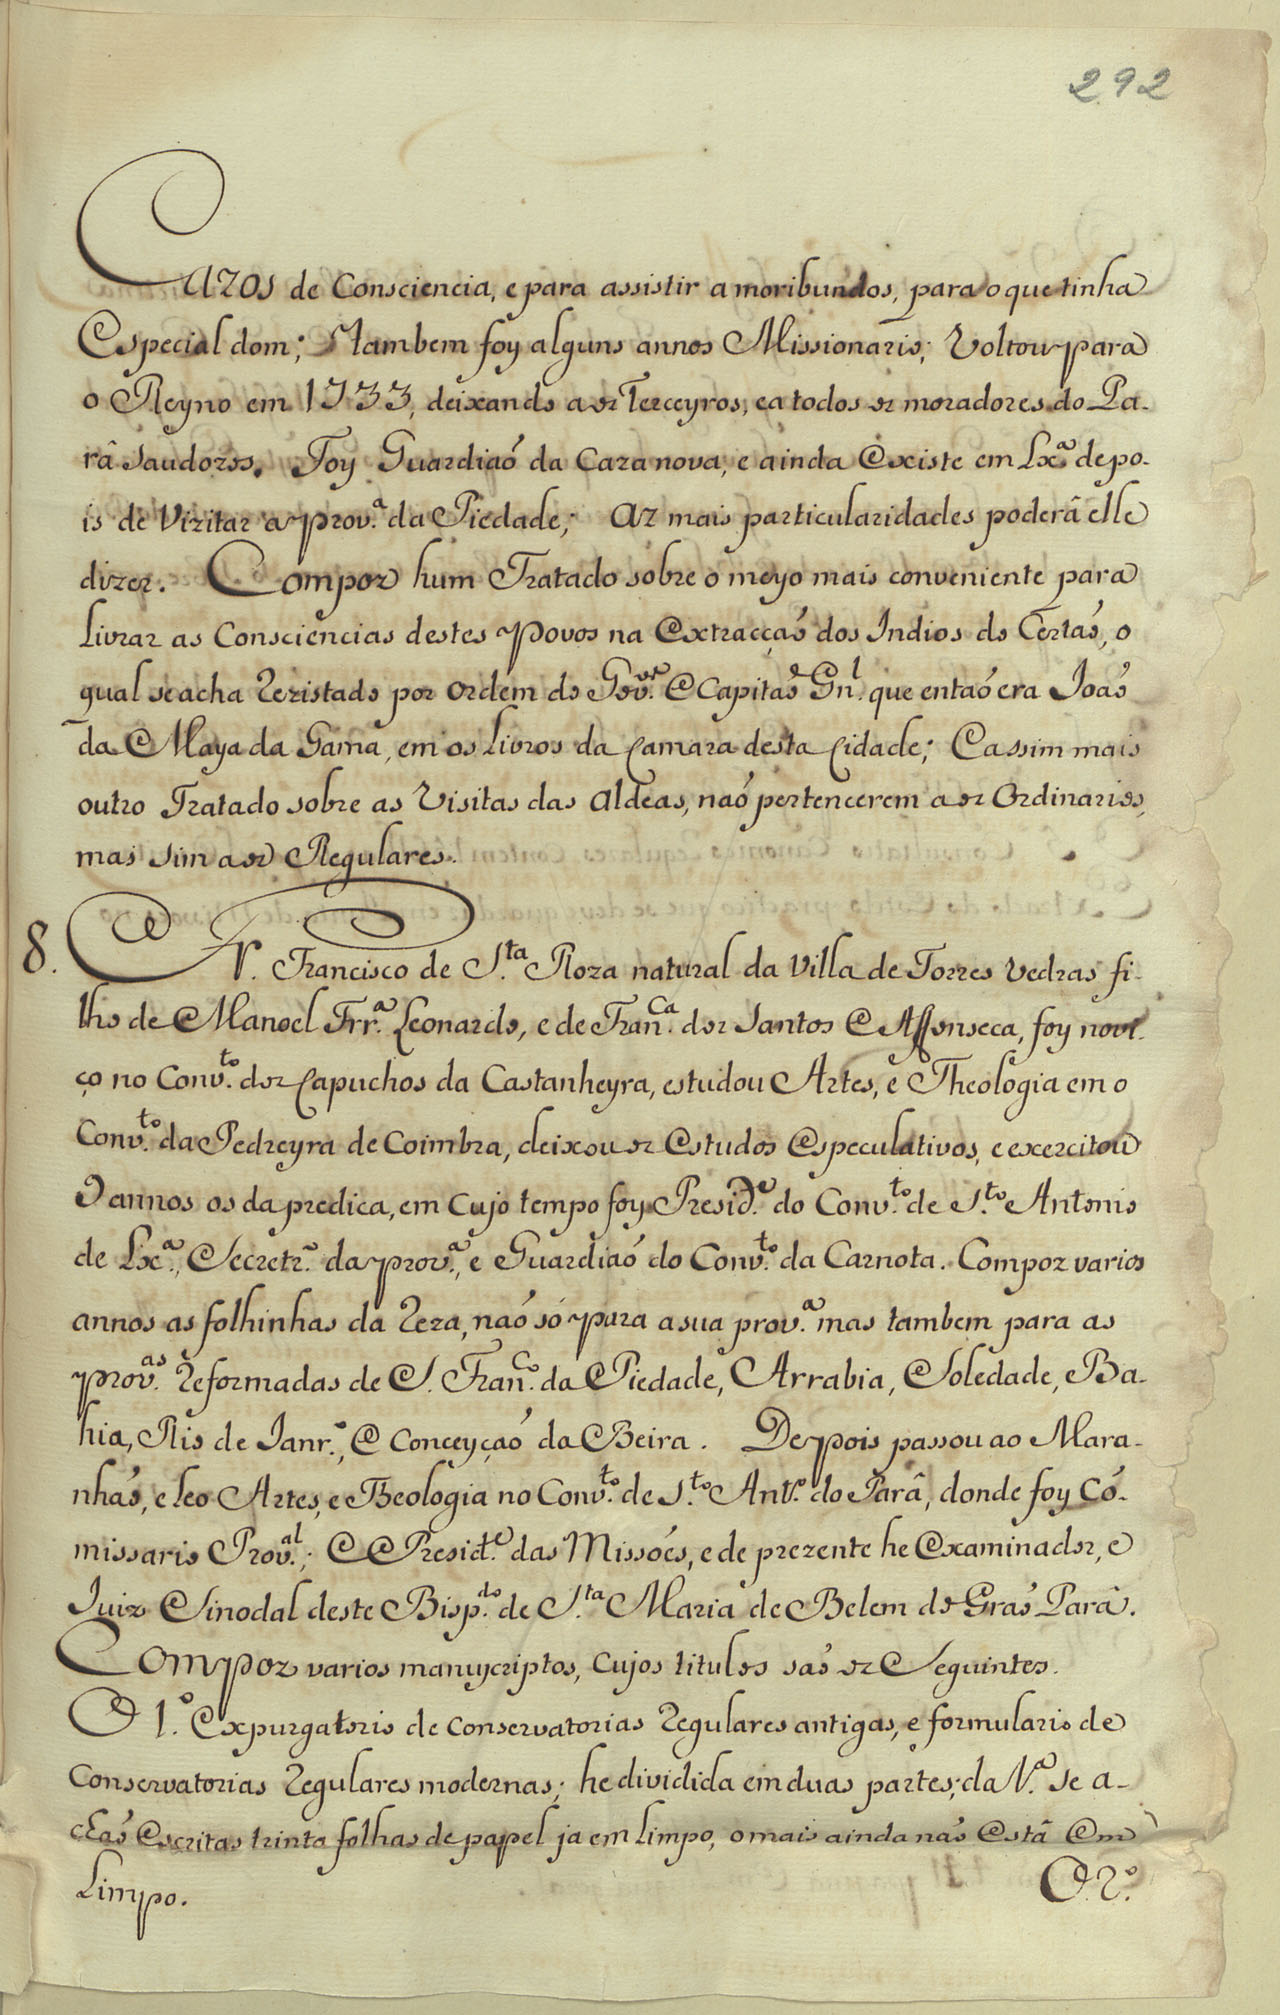 292
Cazos de Consciencia, e para assistir a moribundos, para o que tinha
Especial dom; Tambem foy alguns annos Missionario; Voltou para
o Reyno em 1733, deixando a os Terceyros, e a todos os moradores do Pa-
râ saudozos. Foy Guardiaõ da Caza nova, e ainda Existe em Lx.ª depo-
is de Vizitar a prov.ª da Piedade; As mais particularidades poderâ elle
dizer. Compoz hum Tratado sobre o meyo mais conveniente para
Livrar as Consciencias destes Povos na Extracçaõ dos Indios do Certaõ, o
qual se acha Rezistado por ordem do Gov.ᵒʳ E Capitaõ Gn.ˡ que entaõ era Joaõ
da Maya da Gama, em os Livros da Camara desta Cidade; E assim mais
outro Tratado sobre as Visitas das Aldeas, naõ pertencerem a os Ordinarios,
mas sim a os Regulares.
8. Fr. Francisco de S.ᵗᵃ Roza natural da Villa de Torres Vedras fi-
lho de Manoel Frr.ª Leonardo, e de Fran.ᶜᵃ dos Santos E Affonseca, foy novi-
ço no Conv.ᵗᵒ dos Capuchos da Castanheyra, estudou Artes, e Theologia em o
Conv.ᵗᵒ da Pedreyra de Coimbra, deixou os Estudos Especulativos, e exercitou
9 annos os da predica, em cujo tempo foy Presid.ᵉ do Conv.ᵗᵒ de S.ᵗᵒ Antonio
de Lx.ª, Secretr.º da prov.ª, e Guardiaõ do Conv.ᵗᵒ da Carnota. Compoz varios
annos as folhinhas da Reza, naõ só para a sua prov.ª mas tambem para as
prov.ᵃˢ Reformadas de S. Fran.ᶜᵒ da Piedade, Arrabia, Soledade, Ba-
hia, Rio de Janr.º, E Conceyçaõ da Beira. Depois passou ao Mara-
nhaõ, e leo Artes, e Theologia no Conv.ᵗᵒ de S.ᵗᵒ Ant.º do Parâ, donde foy Cõ-
missario Prov.ᵃˡ; E Presid.ᵉ das Missoẽs, e de prezente he Examinador, e
Juiz Sinodal deste Bisp.ᵈᵒ de S.ᵗᵃ Maria de Belem do Graõ Parâ.
Compoz varios manuscriptos, cujos titulos saõ os Seguintes.
O 1.º Expurgatorio de Conservatorias Regulares antigas, e formulario de
Conservatorias Regulares modernas; he dividida em duas partes; da 1.ª se a-
chaõ Escritas trinta folhas de papel ja em limpo, o mais ainda naõ Estâ Em
Limpo.
O 2.º